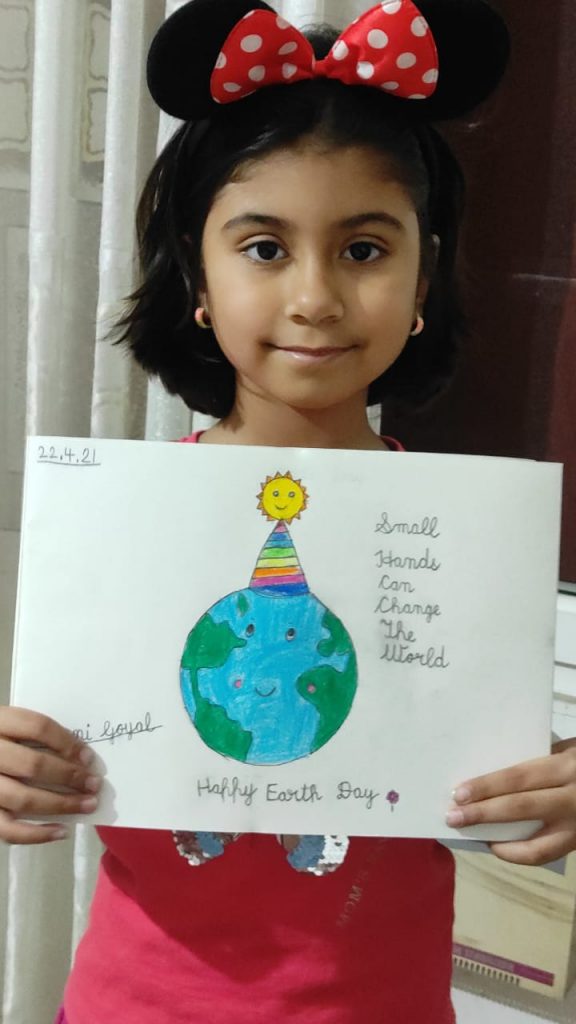 22.4.21
Small
Hands
Can
Change
The
World
Goyal
Happy Earth Day
MOM'S